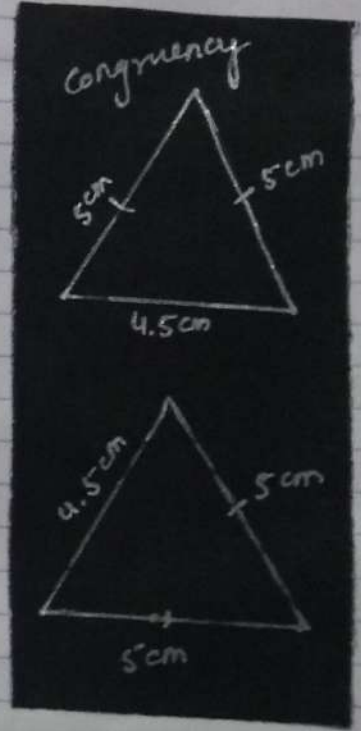 congruency
5cm
5cm
4.5cm
4.5cm
5cm
5cm